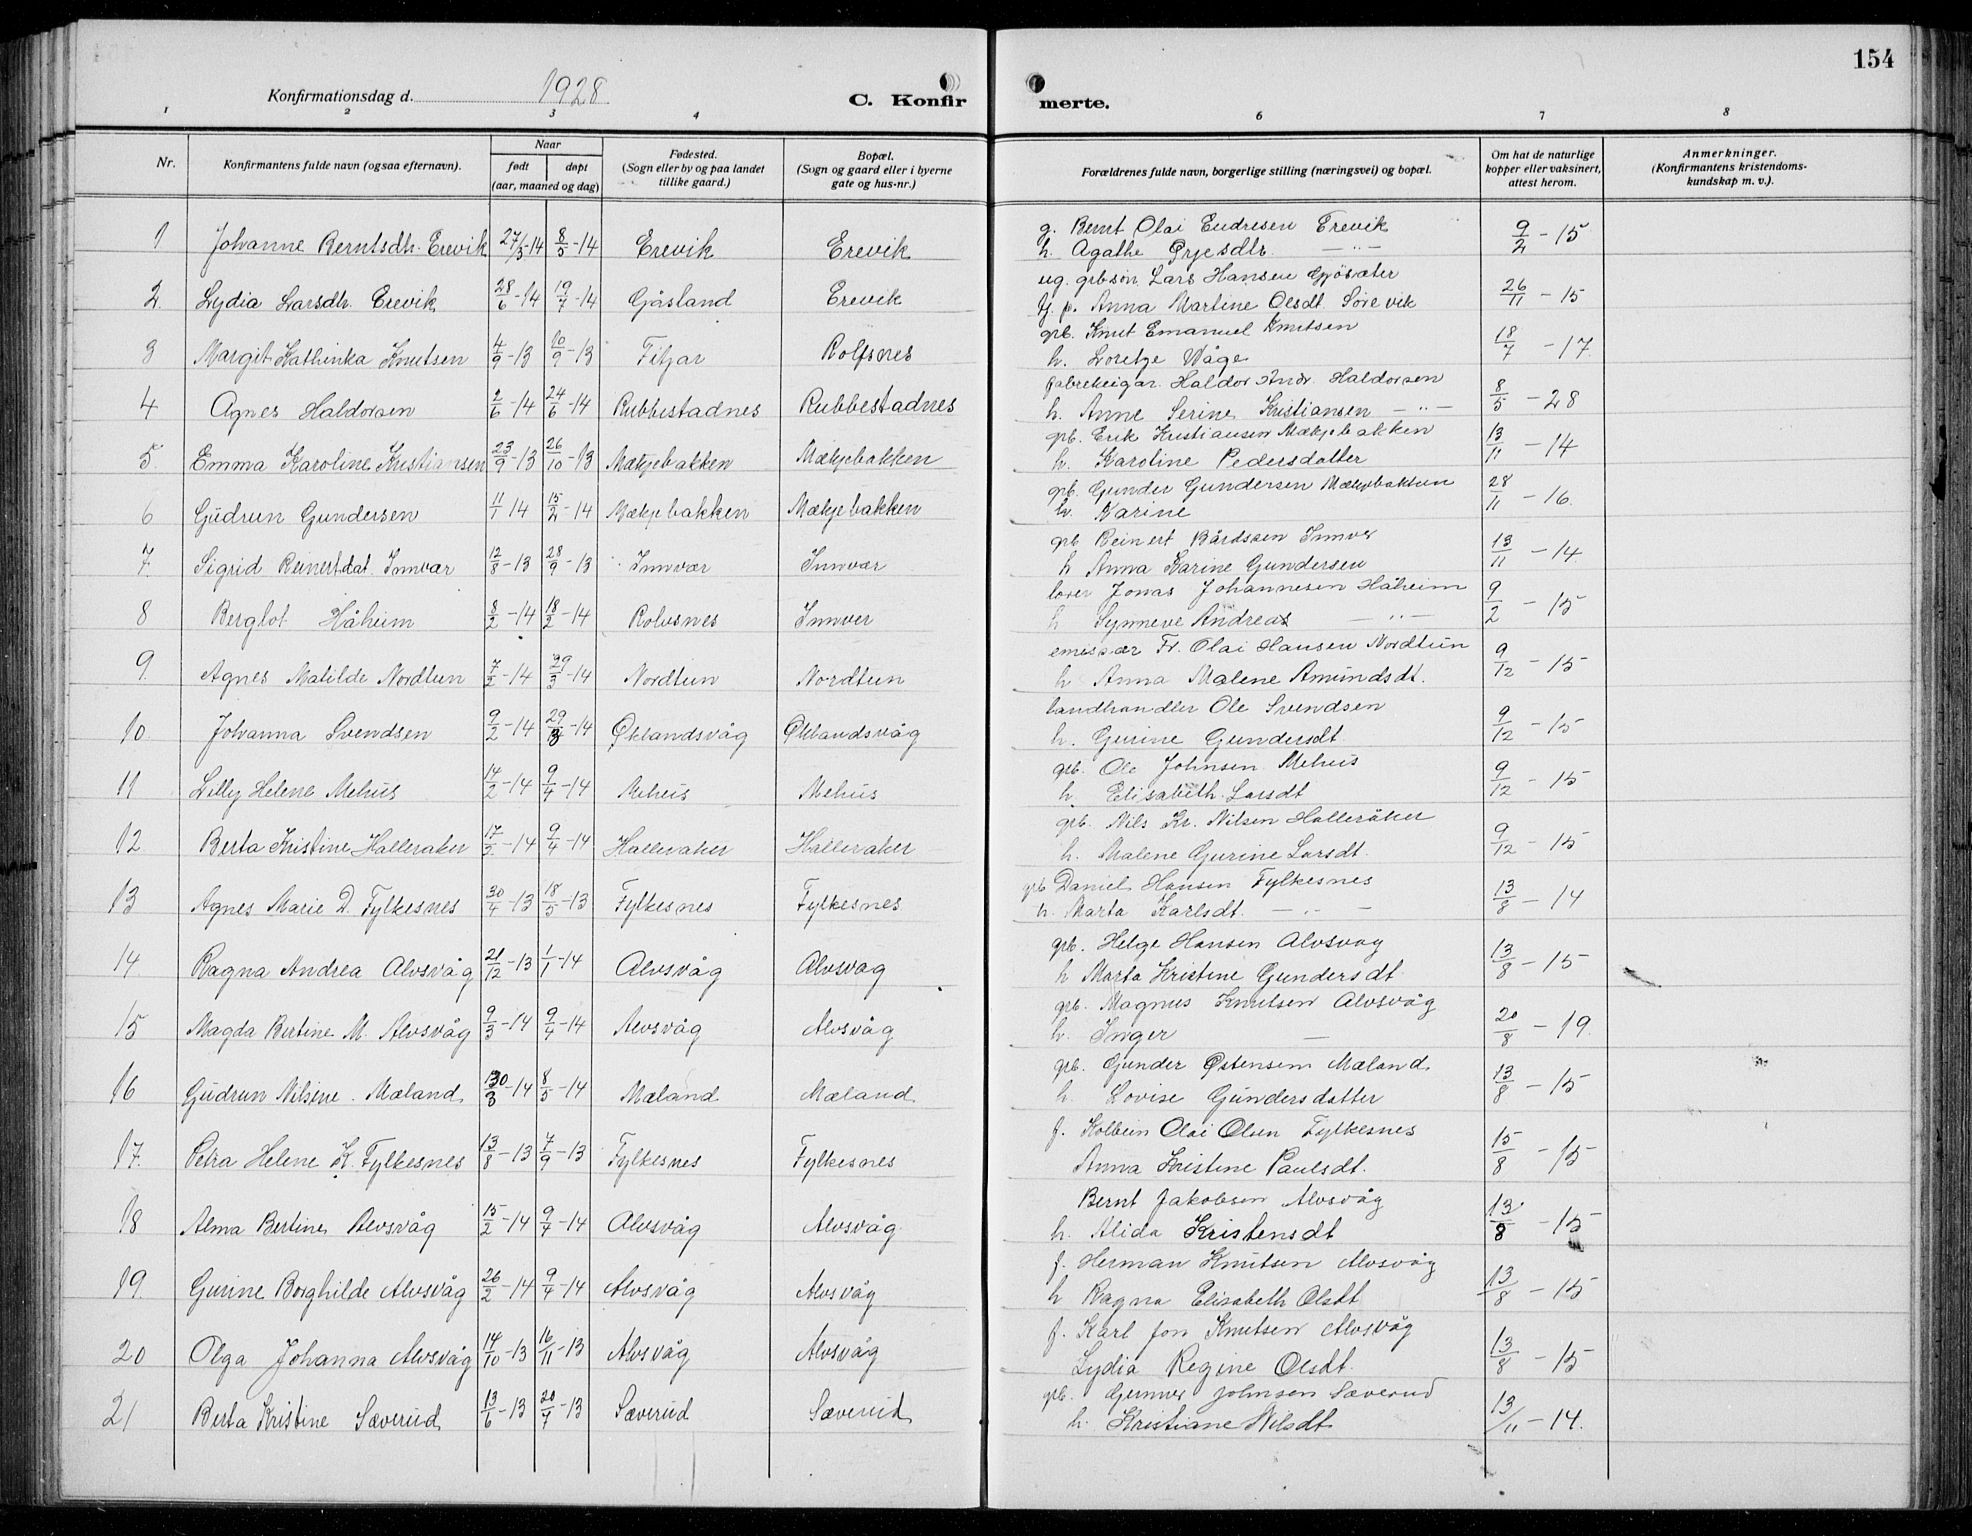 154
Konfirmationsdag d. 1928
C. Konfir merte.
1 2 3 4 6 7 8
Nr.
Konfirmantens fulde navn (ogsaa efternavn).
Naar
født døpt
(aar, maaned og dag)
Fødested.
(Sogn eller by og paa landet
tillike gaard.)
Bopæl.
(Sogn og gaard eller i byerne
gate og hus-nr.)
Forældrenes fulde navn, borgerlige stilling (næringsvei) og bopæl.
Om hat de naturlige
kopper eller vaksinert,
attest herom.
Anmerkninger.
(Konfirmantens kristendoms-
kundskap m. v.).
1 Johanne Berntsdtr. Erevik 27/3-14 8/5-14 Erevik Erevik
g. Bernt Olai Endresen Erevik
h. Agathe —"— 9/2-15
2 Lydia Larsdtr. Erevik 28/6-14 19/7-14 Gåsland Erevik
ug. grbsøn Lars Hansen Gjøsæter
tj. p. Anna Martine Olsdt Sørevik 26/11-15
3 Margit Kathinka Knutsen 4/9-13 10/9-13 Fitjar Rolfsnes
grb. Knut Emanuel Knutsen
h. Loretze Våge 18/7-17
4 Agnes Haldorsen 2/6-14 24/6-14 Rubbestadnes Rubbestadnes
fabrekeigar. Haldor Andr. Haldorsen
h. Anne Serine Kristiansen —"— 8/5-28
5 Emma Karoline Kristiansen 23/9-13 26/10-13 Mækjebakken Mækjebakken
grb. Erik Kristiansen Mækjebakken
h. Karoline Pedersdatter 13/11-14
6 Gudrun Gundersen 11/1 14 15/2-14 Mækjebakken Mækjebakken
grb. Gunder Gundersen Mækjebakken
h. Karine 28/11-16.
7. Sigrid Reinertdat. Innvær 12/8-13 28/9-13 Innvær Innvær
grb. Reinert Bårdssen Innvær
h Anna Karine Gundersen 13/11-14
8 Berglot Håheim 8/2-14 18/2-14 Rolvsnes Innver
lærer Jonas Johannesen Håheim
h Synneve Andreas —"— 9/2-15
9. Agnes Matilde Nordtun 7/2-14 29/3-14 Nordtun Nordtun
emissær Fr. Olai Hansen Nordtun
h Anna Malene Amundsdt. 9/12-15
10 Johanna Svendsen 9/2-14 29/3-14 Øklandsvåg Øklandsvåg
landhandler Ole Svendsen
h. Gurine Gundersdt. 9/12-15
11 Lilly Helene Mehus 14/2-14 9/4-14 Mehus Mehus
grb. Ole Johnsen Mehus
h. Elisabeth Larsdt 9/12-15
12 Berta Kristine Halleraker 17/3-14 9/4-14 Halleraker Halleraker
grb. Nils Kr. Nilsen Halleråker
h. Malene Gurine Larsdt. 9/12-15
13 Agnes Marie D. Fylkesnes 30/4-13 18/5-13 Fylkesnes Fylkesnes
grb Daniel Hansen Fylkesnes
h. Marta Karlsdt. —"— 13/8-14
14 Ragna Andrea Alvsvåg 21/12-13 1/1-14 Alvsvåg Alvsvåg
grb. Helge Hansen Alvsvåg
h Marta Kristine Gundersdt 13/8-15
15 Magda Bertine M. Alvsvåg 9/3-14 9/4-14 Alvsvåg Alvsvåg
grb. Magnus Knutsen Alvsvåg
h. Inger — 20/8-19.
16 Gudrun Nilsine Mæland 30/3-14 8/5-14 Mæland Mæland
grb. Gunder Østensen Mæland
h. Lovise Gundersdatter 13/8-15
17. Petra Helene K. Fylkesnes 13/8-13 7/9-13 Fylkesnes Fylkesnes
f. Kolbein Olai Olsen Fylkesnes
Anna Kristine Paulsdt. 15/8-15
18 Alma Bertine Alvsvåg 15/2-14 9/4-14 Alvsvåg Alvsvåg
Bernt Jakobsen Alvsvåg
h. Alida Kristensdt 13/8-15
19. Gurine Borghilde Alvsvåg 26/2-14 9/4-14 Alvsvåg Alvsvåg
f. Herman Knutsen Alvsvåg
h Ragna Elisabeth Olsdt 13/8-15
20 Olga Johanna Alvsvåg 14/10-13 16/11-13 Alvsvåg Alvsvåg
f. Karl Jon Knutsen Alvsvåg
Lydia Regine Olsdt. 13/8-15
21 Berta Kristine Sæverud 13/6-13 20/7-13 Sæverud Sæverud
grb. Gunner Johnsen Sæverud
h. Kristiane Nilsdt. 13/11-14.